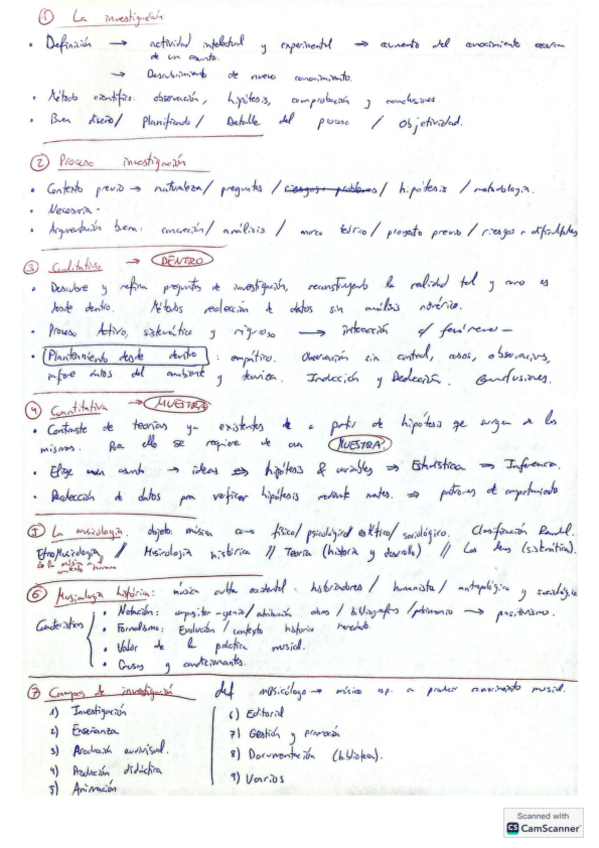 ① La investigación
• Definición → actividad intelectual y experimental → aumento del conocimiento acerca
de un asunto.
→ Descubrimiento de nuevo conocimiento.
• Método científico: observación, hipótesis, comprobación y conclusiones.
• Buen diseño / Planificando / Detalle del proceso / Objetividad.
② Proceso investigación
• Contexto previo → naturaleza / preguntas / / hipótesis / metodología.
• Necesaria.
• Argumentación buena: concreción / análisis / marco teórico / proyecto previo / riesgos o dificultades
③ Cualitativa → DENTRO
• Descubre y refina preguntas de investigación, reconstruyendo la realidad tal y como es
desde dentro. Métodos recolección de datos sin análisis numérico.
• Proceso activo, sistemático y riguroso → interacción c/ fenómeno
• Planteamiento desde dentro: empático. Observación sin control, casos, observaciones,
infiere datos del ambiente y técnica. Inducción y Deducción. Conclusiones.
④ Cuantitativa → MUESTRA
• Contraste de teorías ya existentes de a partir de hipótesis que surgen de las
mismas. Para ello se requiere de una MUESTRA.
• Elige un asunto → ideas ⇒ hipótesis & variables ⇒ Estadística ⇒ Inferencia.
• Recolección de datos para verificar hipótesis mediante mates. ⇒ patrones de comportamiento
⑤ La musicología. objeto: música como físico / psicológico / estético / sociológico. Clasificación Randel.
EtnoMusicología / Musicología histórica // Teoría (historia y desarrollo) // Las (sistemática).
⑥ Musicología histórica: música culta occidental. historiadores / humanista / antropológico y sociológico
Características
• Notación: compositor-genio / atribución obras / bibliografías / patrimonio → positivismo.
• Formalismo: Evolución / contexto histórico
• Valor de la práctica musical.
• Causas y condicionantes.
⑦ Campos de investigación def musicólogo → músico cap. a producir conocimiento musical.
1) Investigación
2) Enseñanza
3) Producción audiovisual.
4) Producción didáctica
5) Animación
6) Editorial
7) Gestión y promoción
8) Documentación (bibliotecas).
9) Varios
Scanned with
CS CamScanner